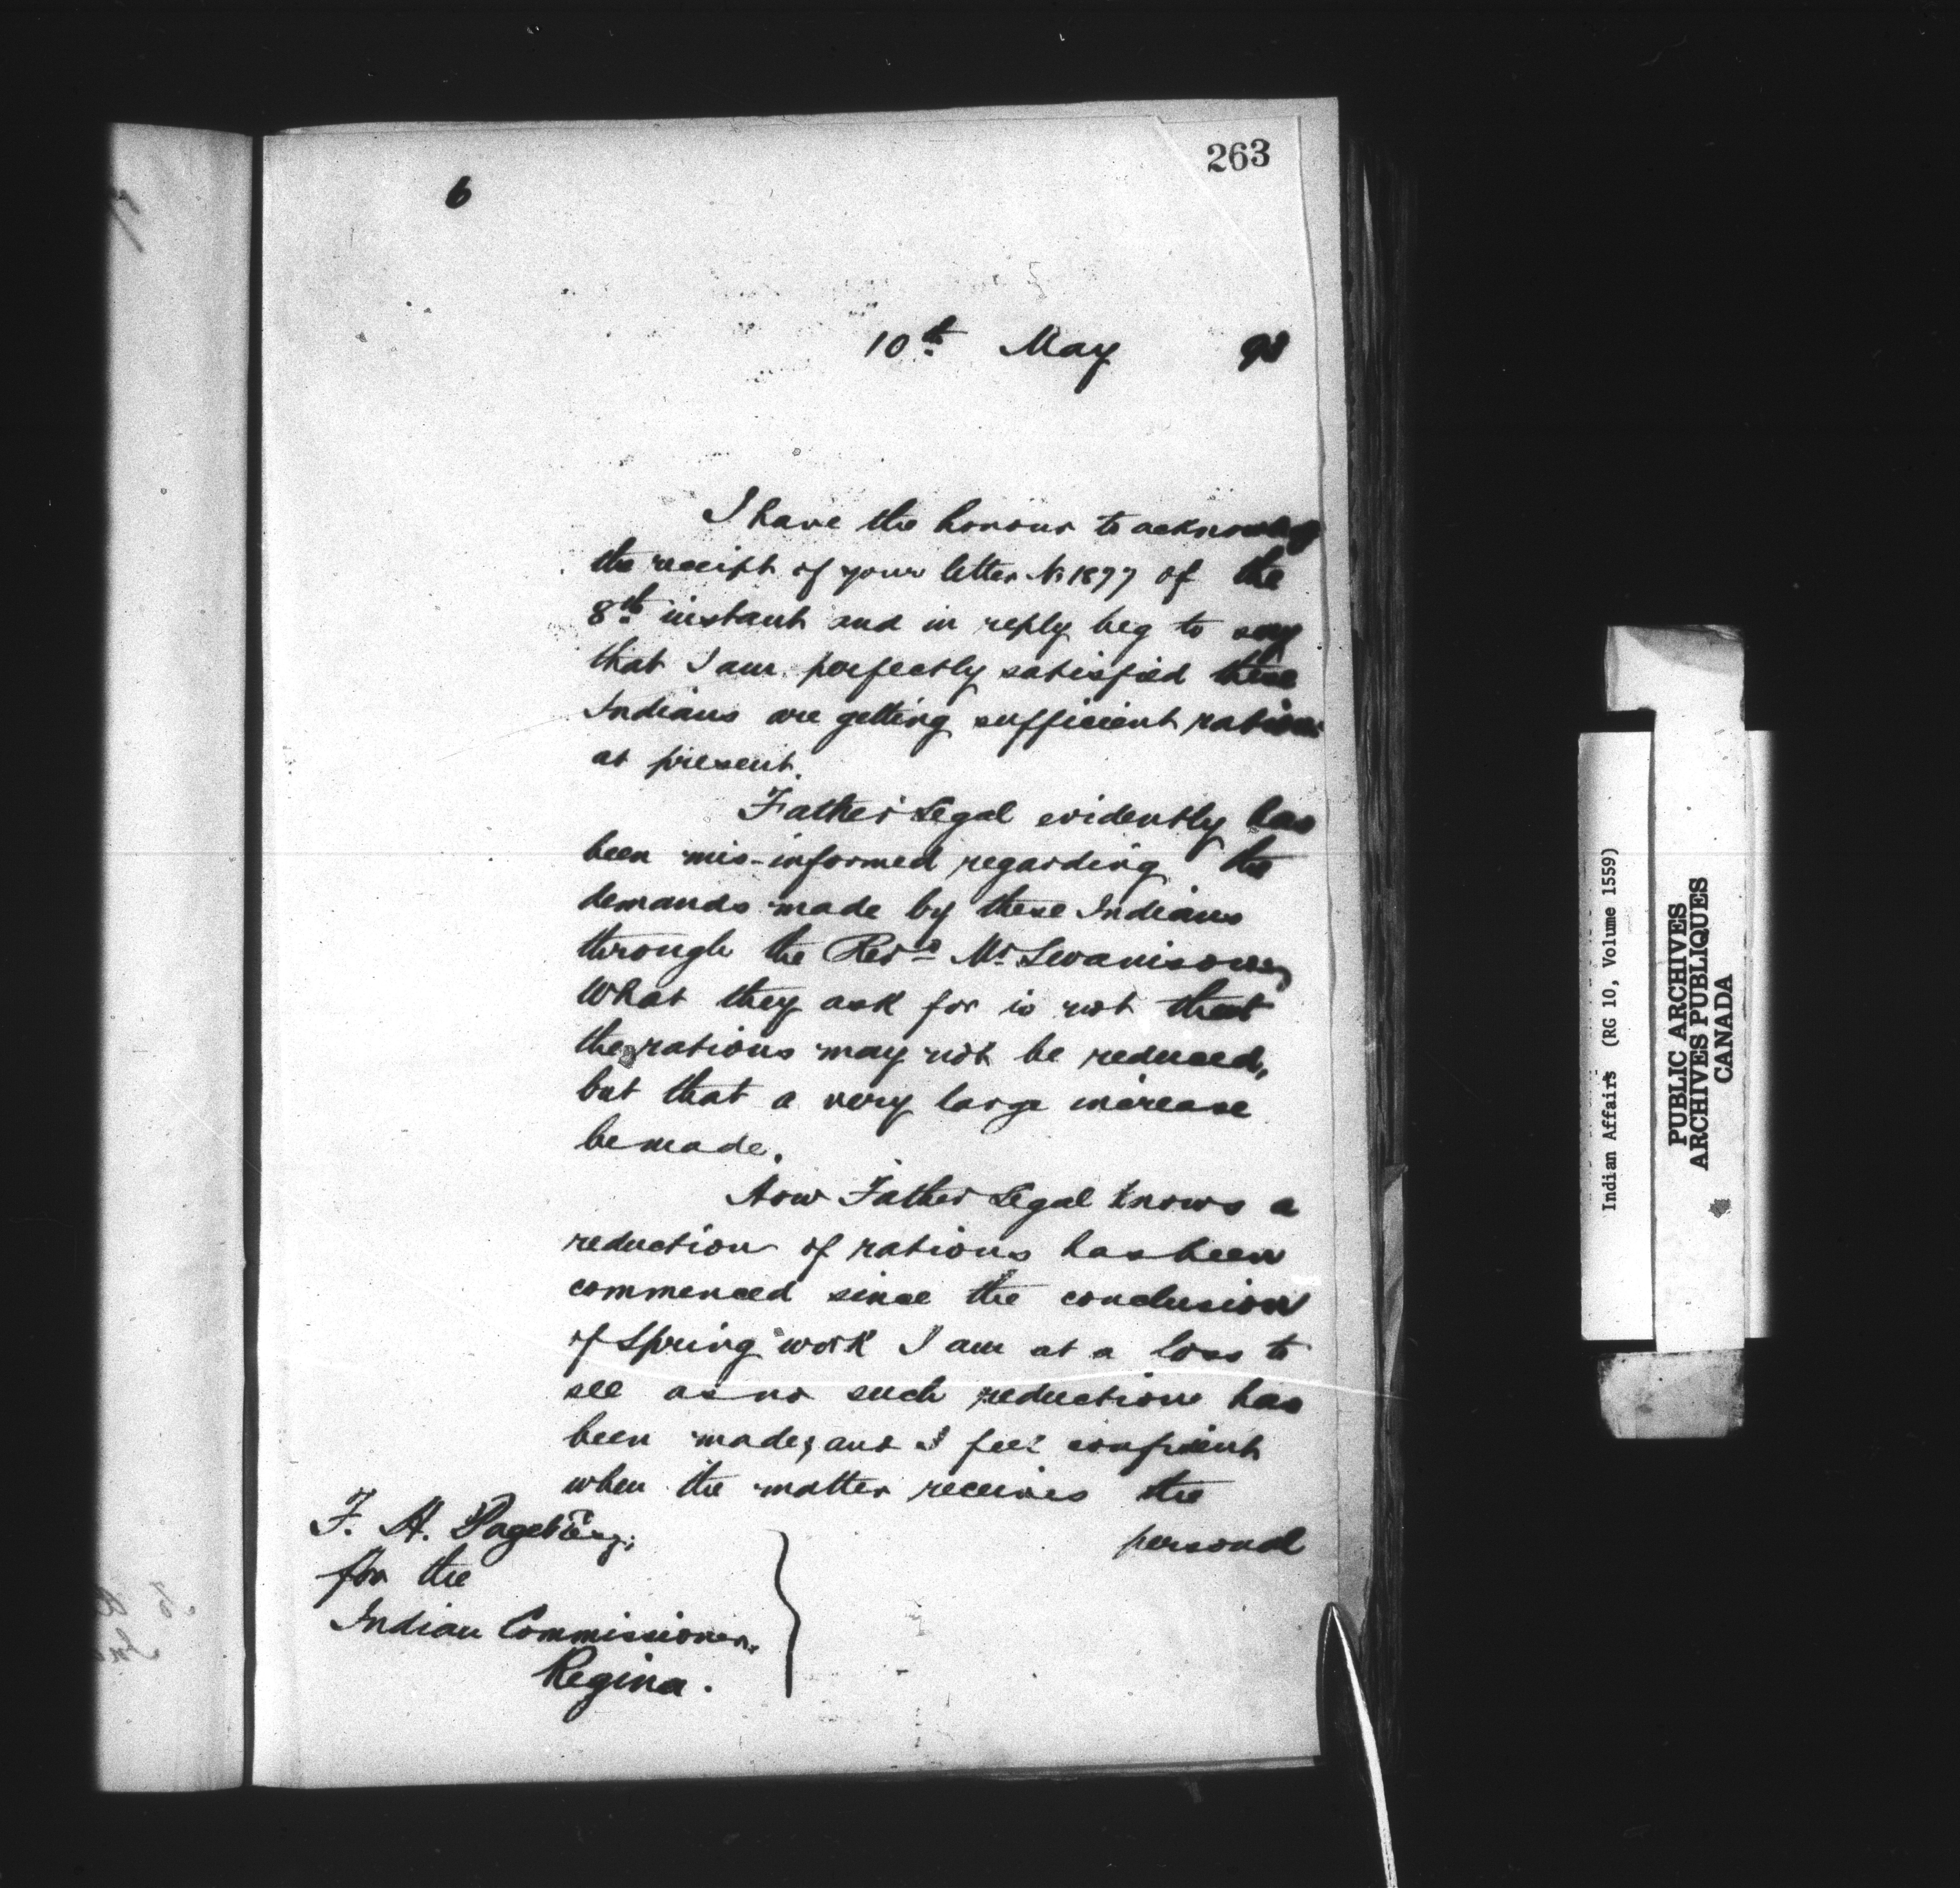 263
6
10th May 93
I have the honour to acknowledge
the receipt of your letter No 1877 of the
8th instant and in reply beg to say
that I am perfectly satisfied these
Indians are getting sufficient rations
at present.
Father Legal evidently has
been mis-informed regarding the
demands made by these Indians
through the Revd Mr Swainson,
What they ask for is not that
the rations may not be reduced,
but that a very large increase
be made.
How Father Legal knows a
reduction of rations has been
commenced since the conclusion
of Spring work I am at a loss to
see as no such reduction has
been made; and I feel confident
when the matter receives the
personal
F. H. Paget Esq;
for the
Indian Commissioner,
Regina.
Indian Affairs (RG 10, Volume 1559)
PUBLIC ARCHIVES
ARCHIVES PUBLIQUES
CANADA